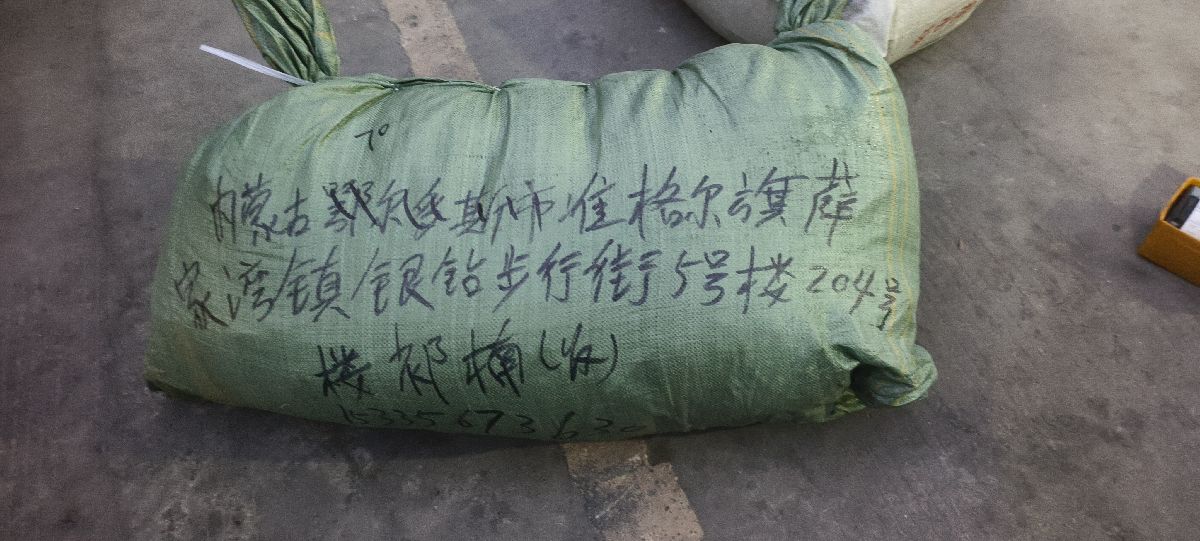 70
内蒙古鄂尔多斯市准格尔旗薛
家湾镇银钻步行街5号楼204号
楼祁楠(收)
15335673630